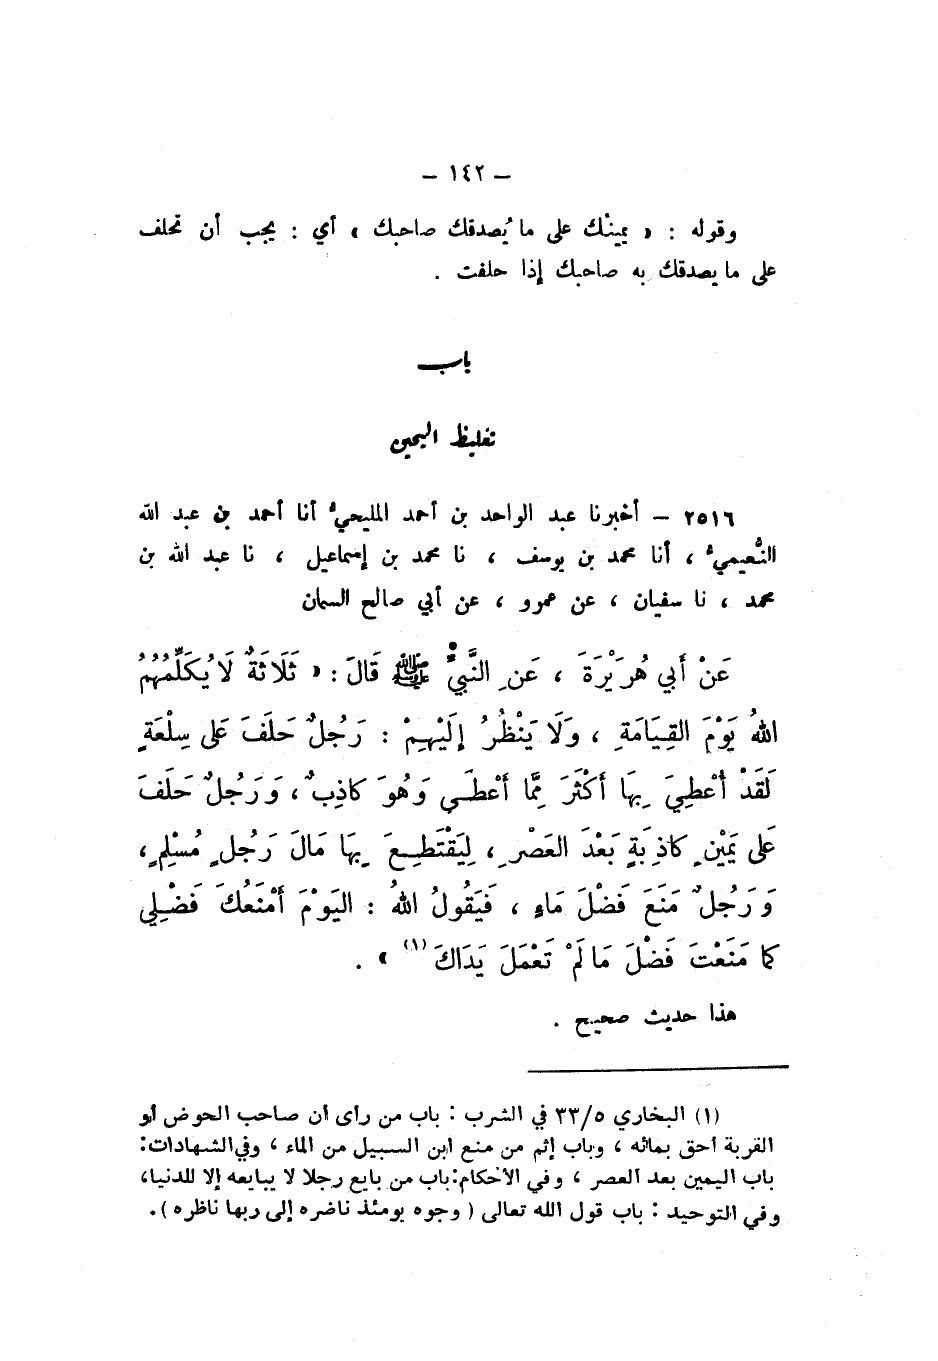 – ١٤٢ –
وقوله : « يمينُك على ما يُصدقك صاحبك » أي : يجب أن تحلف
على ما يصدقك به صاحبك إذا حلفت .
باب
تغليظ اليمين
٢٥١٦ – أخبرنا عبد الواحد بن أحمد المليحيُّ أنا أحمد بن عبد الله
النُّعيميُّ ، أنا محمد بن يوسف ، نا محمد بن إسماعيل ، نا عبد الله بن
محمد ، نا سفيان ، عن عمرو ، عن أبي صالح السمان
عَنْ أَبي هُرَيْرَةَ ، عَنِ النَّبيِّ ﷺ قَالَ : « ثَلَاثَةٌ لَا يُكَلِّمُهُمُ
اللهُ يَوْمَ القِيَامَةِ ، وَلَا يَنْظُرُ إِلَيْهِمْ : رَجُلٌ حَلَفَ عَلى سِلْعَةٍ
لَقَدْ أُعْطِيَ بِهَا أَكْثَرَ مِمَّا أَعْطَى وَهُوَ كَاذِبٌ ، وَرَجُلٌ حَلَفَ
عَلى يَمْيْنٍ كَاذِبَةٍ بَعْدَ العَصْرِ ، لِيَقْتَطِعَ بِهَا مَالَ رَجُلٍ مُسْلِمٍ ،
وَرَجُلٌ مَنَعَ فَضْلَ مَاءٍ ، فَيَقُولُ اللهُ : اليَوْمَ أَمْنَعُكَ فَضْلِي
كما مَنَعْتَ فَضْلَ مَا لَمْ تَعْمَلْ يَدَاكَ (١) » .
هذا حديث صحيح .
(١) البخاري ٣٣/٥ في الشرب : باب من رأى أن صاحب الحوض أو
القربة أحق بمائه ، وباب إثم من منع ابن السبيل من الماء ، وفي الشهادات:
باب اليمين بعد العصر ، وفي الأحكام: باب من بايع رجلا لا يبايعه إلا للدنيا،
وفي التوحيد : باب قول الله تعالى ( وجوه يومئذ ناضره إلى ربها ناظره ).